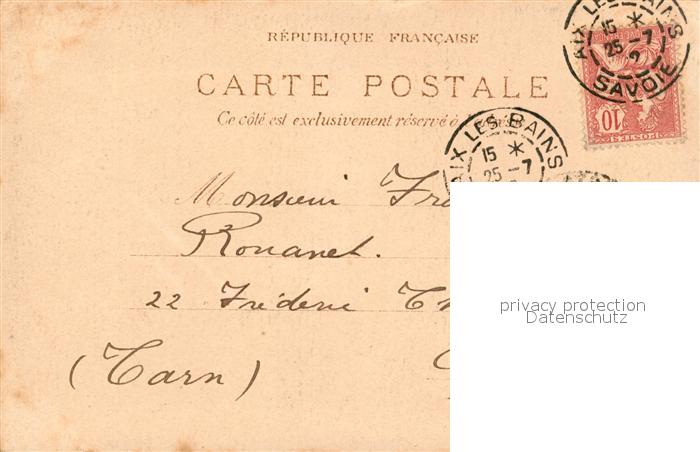 RÉPUBLIQUE FRANÇAISE
CARTE POSTALE
Ce côté est exclusivement réservé à
AIX LES BAINS
15 *
25 - 7
2
SAVOIE
10
POSTES
AIX LES BAINS
15 *
25 - 7
Monsieur
Rouanet.
22 Fréderic
(Tarn)
privacy protection
Datenschutz